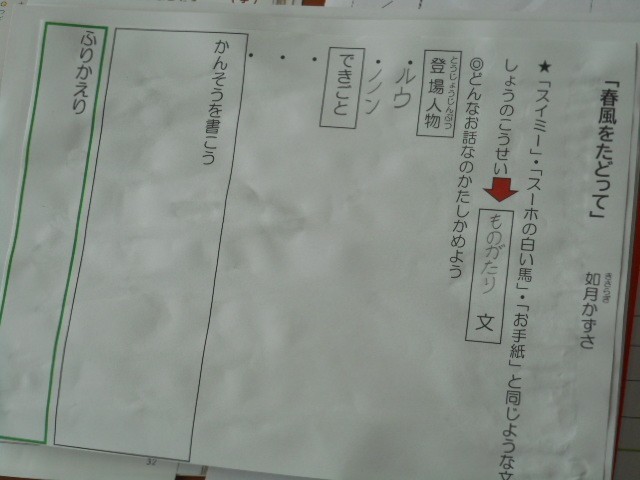 「春風をたどって」
如月かずさ
きさらぎ
★「スイミー」・「スーホの白い馬」・「お手紙」と同じような文
しょうのこうせい
ものがたり 文
◎どんなお話なのかたしかめよう
登場人物
とうじょうじんぶつ
・ルウ
・ノノン
できごと
・
・
・
かんそうを書こう
ふりかえり
32